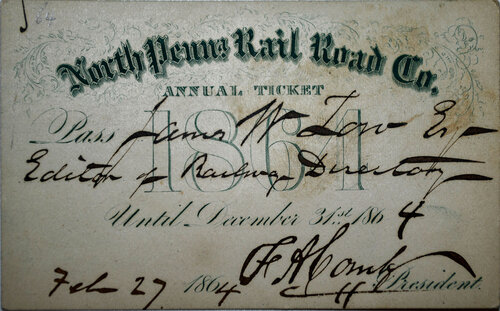 North Penna Rail Road Co.
ANNUAL TICKET
1864
Pass James W Low Esq
Editor of Railway Directory
Until December 31.st 1864
Feb 27 1864 President.